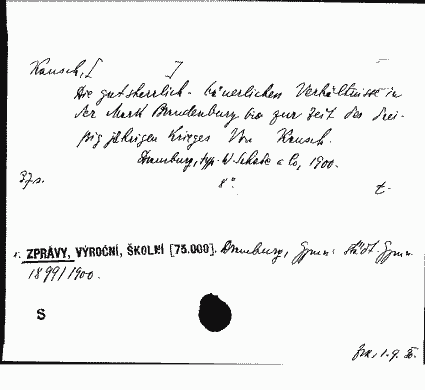 Kausch, [ ]
Die gutsherrlich-bäuerlichen Verhältnisse in
der Mark Brandenburg bis zur Zeit des drei-
ßigjährigen Krieges Von Kausch.
Dramburg, typ. W. Schade & Co, 1900.
37 s. 8° t-
v. ZPRÁVY, VÝROČNÍ, ŠKOLNÍ [75.000]. Dramburg, Gymn: städt. Gymn.
1899/1900.
S
1.9.